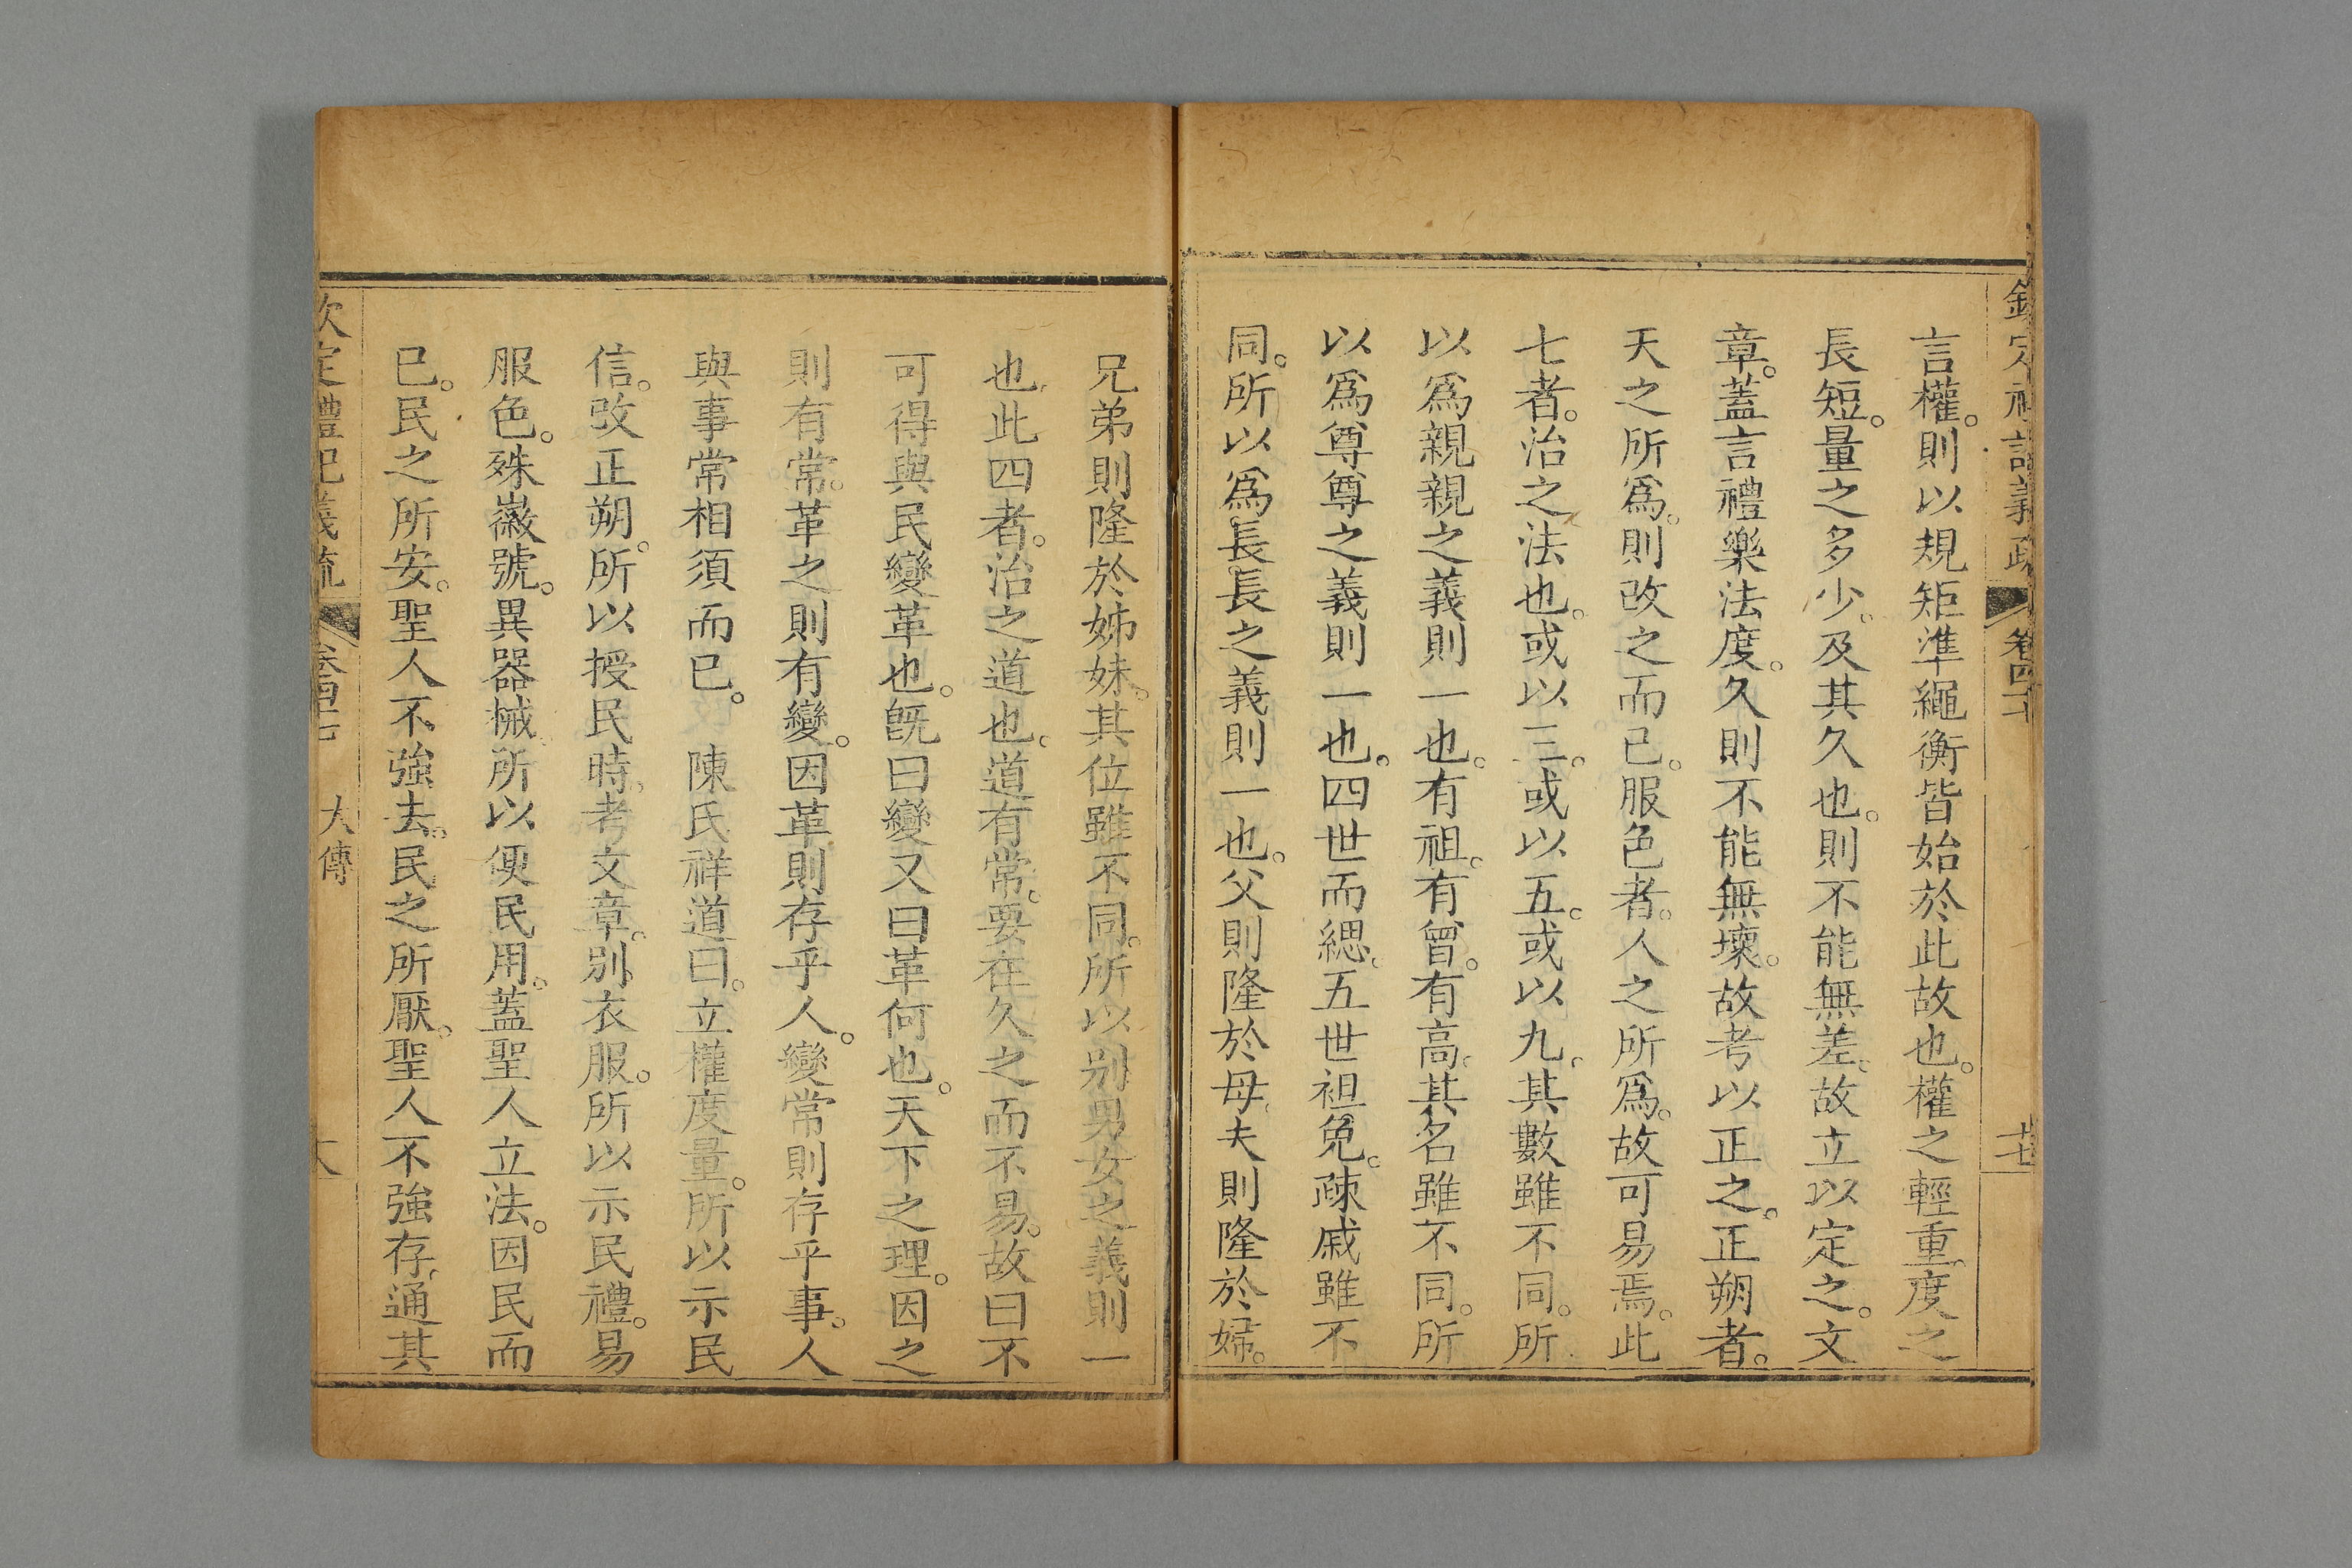 欽定禮記義疏 卷四十七 十七
言權。則以規矩準繩衡皆始於此故也。權之輕重。度之
長短。量之多少。及其久也。則不能無差。故立以定之。文
章。蓋言禮樂法度。久則不能無壞。故考以正之。正朔者。
天之所爲。則改之而已。服色者。人之所爲。故可易焉。此
七者。治之法也。或以三。或以五。或以九。其數雖不同。所
以爲親親之義則一也。有祖。有曾。有高。其名雖不同。所
以爲尊尊之義則一也。四世而緦。五世袒免。疎戚雖不
同。所以爲長長之義則一也。父則隆於母。夫則隆於婦。
兄弟則隆於姊妹。其位雖不同。所以别男女之義則一
也。此四者。治之道也。道有常。要在久之而不易。故曰不
可得與民變革也。旣曰變又曰革何也。天下之理。因之
則有常。革之則有變。因革則存乎人。變常則存乎事。人
與事常相須而已。 陳氏祥道曰。立權度量。所以示民
信。改正朔。所以授民時。考文章。别衣服。所以示民禮。易
服色。殊徽號。異器械。所以便民用。蓋聖人立法。因民而
已。民之所安。聖人不強去。民之所厭。聖人不強存。通其
欽定禮記義疏 卷四十七 大傳